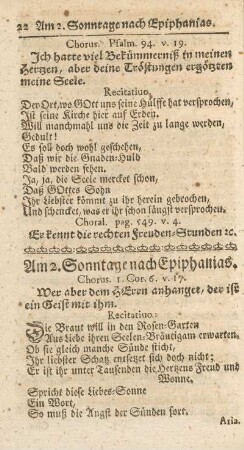 22 Am 2. Sonntage nach Epiphanias.
Chorus. Psalm. 94. v. 19.
Ich hatte viel Bekümmerniß in meinen
Hertzen, aber deine Tröstungen ergötzten
meine Seele.
Recitativo,
Der Ort, wo GOtt uns seine Hülffe hat versprochen,
Ist seine Kirche hier auf Erden.
Will manchmahl uns die Zeit zu lange werden,
Gedult!
Es soll doch wohl geschehen,
Daß wir die Gnaden-Huld
Bald werden sehen.
Ja, ja, die Seele mercket schon,
Daß GOttes Sohn
Ihr Liebster kömmt zu ihr herein gebrochen,
Und schencket, was er ihr schon längst versprochen.
Choral. pag. 649. v. 4.
Er kennt die rechten Freuden-Stunden ꝛc.
Am 2. Sonntage nach Epiphanias.
Chorus. 1. Cor. 6. v. 17.
Wer aber dem HErrn anhanget, der ist
ein Geist mit ihm.
Recitativo:
Die Braut will in den Rosen-Garten
Aus Liebe ihren Seelen-Bräutigam erwarten.
Ob sie gleich manche Sünde sticht,
Ihr liebster Schatz entsetzt sich doch nicht;
Er ist ihr unter Tausenden die Hertzens Freud und
Wonne.
Spricht diese Liebes-Sonne
Ein Wort,
So muß die Angst der Sünden fort.
Aria.